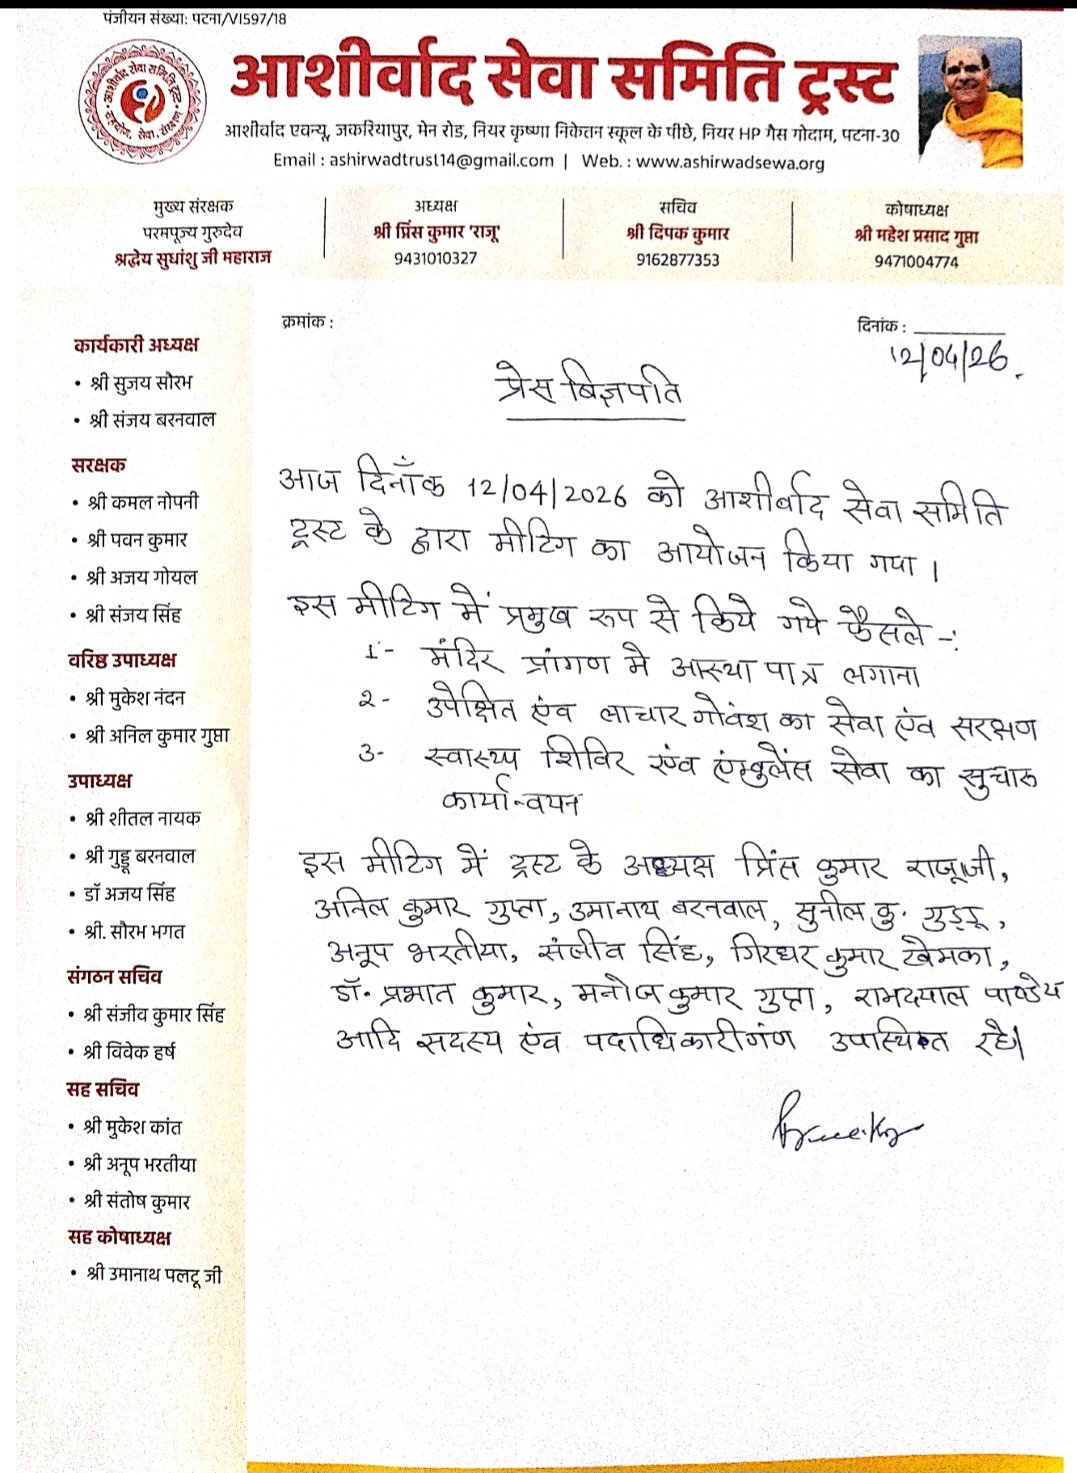 पंजीयन संख्या: पटना/VI597/18
आशीर्वाद सेवा समिति ट्रस्ट
आशीर्वाद सेवा समिति ट्रस्ट
सहयोग, सेवा, संरक्षण
आशीर्वाद एवन्यू, जकरियापुर, मेन रोड, नियर कृष्णा निकेतन स्कूल के पीछे, नियर HP गैस गोदाम, पटना-30
Email : ashirwadtrust14@gmail.com | Web. : www.ashirwadsewa.org
मुख्य संरक्षक
परमपूज्य गुरुदेव
श्रद्धेय सुधांशु जी महाराज
अध्यक्ष
श्री प्रिंस कुमार 'राजू'
9431010327
सचिव
श्री दिपक कुमार
9162877353
कोषाध्यक्ष
श्री महेश प्रसाद गुप्ता
9471004774
कार्यकारी अध्यक्ष
• श्री सुजय सौरभ
• श्री संजय बरनवाल
सरक्षक
• श्री कमल नोपनी
• श्री पवन कुमार
• श्री अजय गोयल
• श्री संजय सिंह
वरिष्ठ उपाध्यक्ष
• श्री मुकेश नंदन
• श्री अनिल कुमार गुप्ता
उपाध्यक्ष
• श्री शीतल नायक
• श्री गुड्डू बरनवाल
• डॉ अजय सिंह
• श्री. सौरभ भगत
संगठन सचिव
• श्री संजीव कुमार सिंह
• श्री विवेक हर्ष
सह सचिव
• श्री मुकेश कांत
• श्री अनूप भरतीया
• श्री संतोष कुमार
सह कोषाध्यक्ष
• श्री उमानाथ पलटू जी
क्रमांक :
दिनांक :
12/04/26.
प्रेस बिज्ञपति
आज दिनाँक 12/04/2026 को आशीर्वाद सेवा समिति
ट्रस्ट के द्वारा मीटिग का आयोजन किया गया।
इस मीटिग में प्रमुख रूप से किये गये फैसले -:
1- मंदिर प्रांगण मे आस्था पात्र लगाना
2- उपेक्षित एंव लाचार गोवंश का सेवा एंव सरक्षण
3- स्वास्थ्य शिविर एंव एंम्बुलेंस सेवा का सुचारू
कार्यान्वयन
इस मीटिग में ट्रस्ट के अध्यक्ष प्रिंस कुमार राजू जी,
अनिल कुमार गुप्ता, उमानाथ बरनवाल, सुनील कु. गुड्डू,
अनूप भरतीया, संजीव सिंह, गिरधर कुमार खेमका,
डॉ. प्रभात कुमार, मनोज कुमार गुप्ता, रामदयाल पाण्डेय
आदि सदस्य एंव पदाधिकारीगंण उपस्थित रहे।